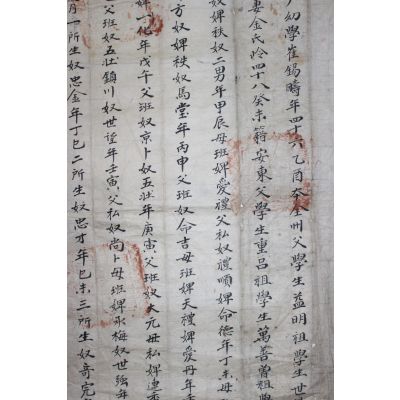 幼學崔錫疇年四十六乙酉本全州父學生益明祖學生世
妻金氏齡四十八癸未籍安東父學生重呂祖學生萬善曾祖學
奴婢秩奴二男年甲辰母班婢愛禮父私奴禮順婢命德年丁未母
方奴婢秩奴馬堂年丙申父班奴命吉母班婢天禮婢愛丹年
婢一化年戊午父班奴京卜奴五壯年庚寅父班奴大元母私婢連
父班奴五壯鎮川奴世望年壬寅父私奴尚卜母班婢永梅奴世強年
月一所生奴忠金年丁巳二所生奴忠才年己未三所生奴奇完